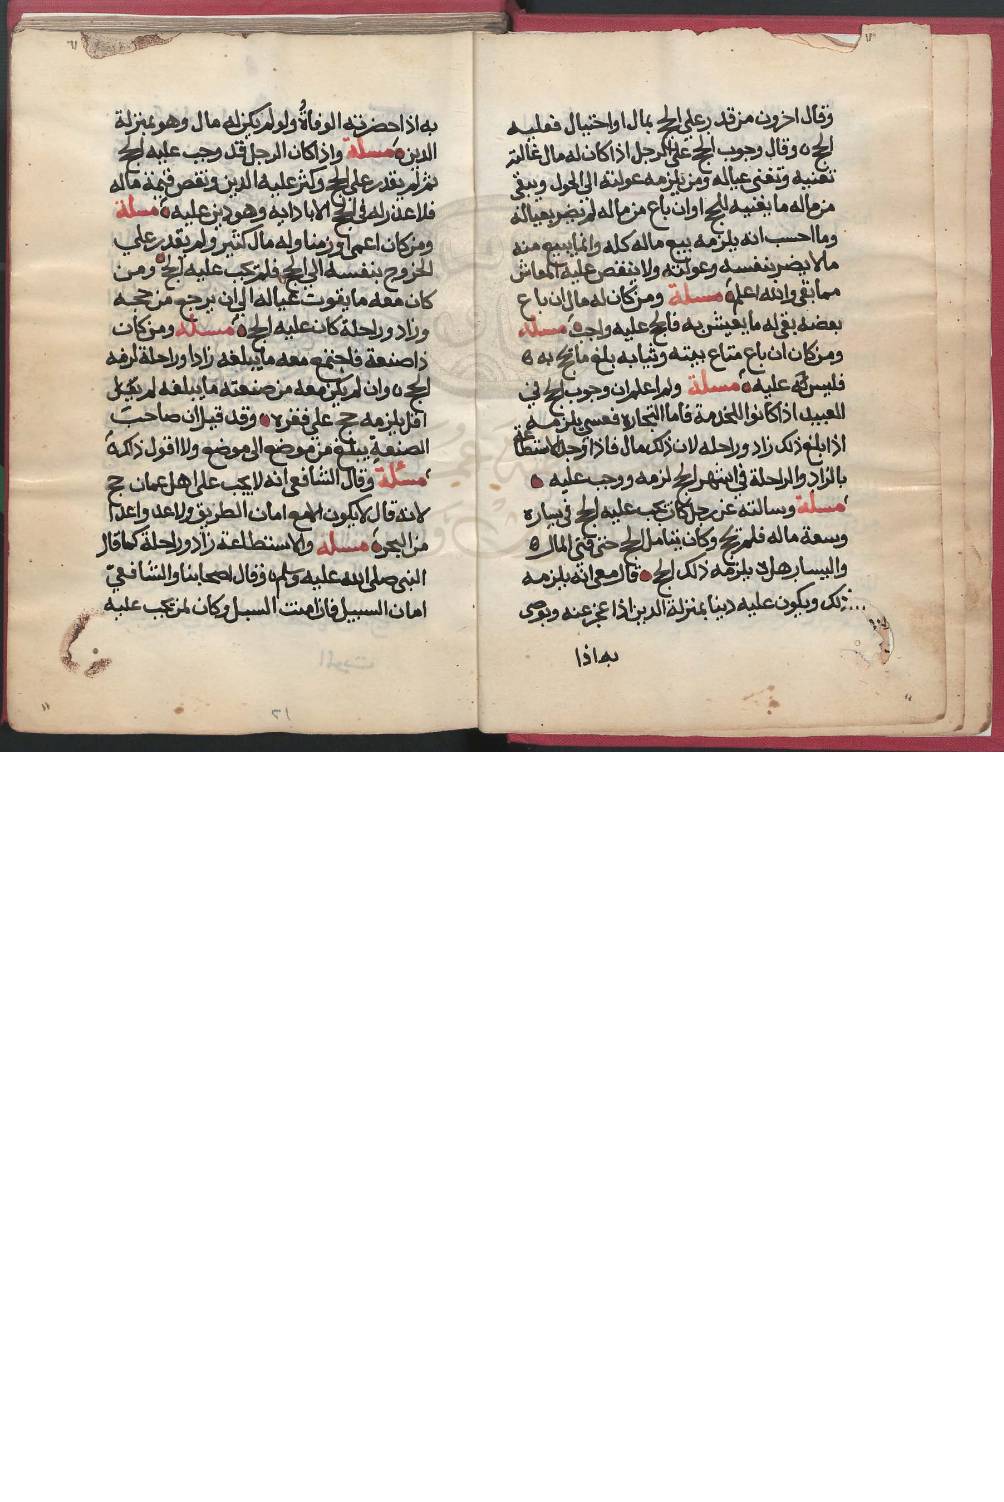 وقال اخرون من قدر على الحج بمال او احتيال فعليه
الحج ه وقال وجوب الحج على الرجل اذا كان له مال غالته
تغنيه وتغني عياله ومن يلزمه عولته الى الحول ويبقى
من ماله ما يغنيه للحج او ان باع من ماله لم يضر بعياله
وما احسب انه يلزمه بيع ماله كله وانما يبيع منه
ما لا يضر بنفسه وعولته ولا ينقص عليه المعاش
مما بقي والله اعلم ه مسلة ومن كان له مال ان باع
بعضه بقي له ما يعيش به فالحج عليه واجب مسلة
ومن كان ان باع متاع بيته وثيابه بلغ ما يحج به ه
فليس عليه ه مسلة ولم اعلم ان وجوب الحج في
العبيد اذا كانوا للخدمة فاما التجارة فعسى يلزمه
اذا بلغ ذلك زاد وراحلة لان ذلك مال فاذا وجد الاستطاعة
بالزاد والراحلة في اشهر الحج لزمه ووجب عليه ه
مسلة وسالته عن رجل كان يجب عليه الحج في يساره
وسعة ماله فلم يحج وكان يتامل الحج حتى فنى المال ه
واليسار هل يلزمه ذلك الحج ه قال معي انه يلزمه
ذلك ويكون عليه دينا بمنزلة الدين اذا عجز عنه ويوصي
به اذا
به اذا حضرته الوفاة ولو لم يكن له مال وهو بمنزلة
الدين ه مسلة واذا كان الرجل قد وجب عليه الحج
ثم لم يقدر على الحج وكثر عليه الدين ونقص قيمة ماله
فلا عذر له في الحج الا بادايه وهو دين عليه ه مسلة
ومن كان اعمى او زمنا وله مال كثير ولم يقدر على
الخروج بنفسه الى الحج فلم يجب عليه الحج ه ومن
كان معه ما يقوت عياله الى ان يرجع من حجه
وزاد وراحلة كان عليه الحج ه مسلة ومن كان
ذا صنعة فاجتمع معه ما يبلغه زادا وراحلة لزمه
الحج ه وان لم يكن معه من صنعته ما يبلغه لم
اقل يلزمه حج على فقره ه وقد قيل ان صاحب
الصنعة يبلغ من موضع الى موضع ولا اقول ذلك ه
مسئلة وقال الشافعي انه لا يجب على اهل عمان حج
لانه قال لا يكون الا مع امان الطريق ولا عدوا عدا
من البحر ه مسلة والاستطاعة زاد وراحلة كما قال
النبي صلى الله عليه وسلم ه وقال اصحابنا والشافعي
امان السبيل فاذا امنت السبل وكان لم يجب عليه